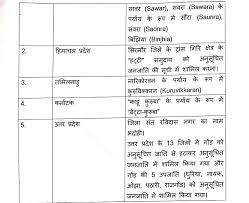 सावर (Sawar), सवरा (Sawara) के
पर्याय के रूप में सौंरा (Saunra),
संवरा (Saonra)
बिंझिया (Binjhia)
2. हिमाचल प्रदेश सिरमौर जिले के ट्रांस गिरि क्षेत्र के
"हट्टी" समुदाय को अनुसूचित
जनजाति की सूची में शामिल करना।
3. तमिलनाडु नारिकोरवन के पर्याय के रूप में
कुरुविक्करन (Kuruvikkaran)
4. कर्नाटक "काडू कुरुबा" के पर्याय के रूप में
"बेट्टा-कुरुबा"
5. उत्तर प्रदेश जिला संत रविदास नगर का नाम
भदोही।
उत्तर प्रदेश के 13 जिलों में गोंड को
अनुसूचित जाति से हटाकर अनुसूचित
जनजाति में शामिल किया गया और
गोंड की 5 उपजाति (धुरिया, नायक,
ओझा, पठारी, राजगोंड) को अनुसूचित
जनजाति में शामिल किया गया।